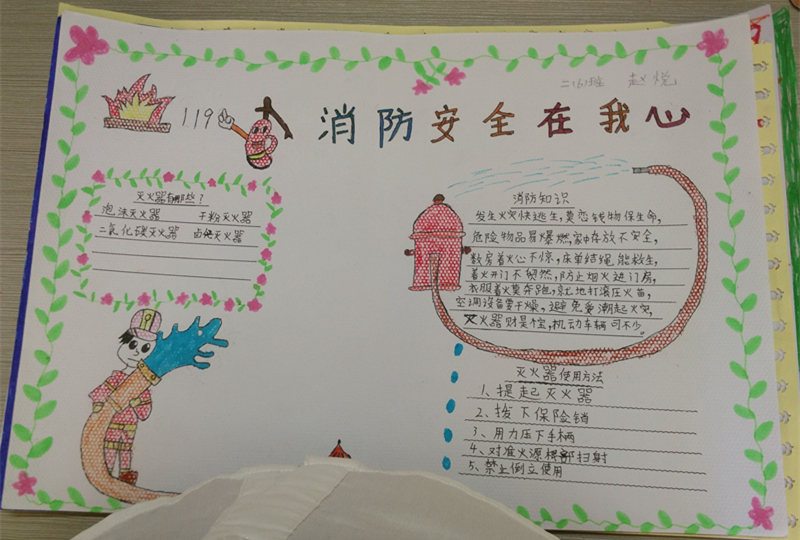 二(6)班 赵悦
119
消防安全在我心
灭火器有哪些?
泡沫灭火器 干粉灭火器
二氧化碳灭火器 灭火器
消防知识
发生火灾快逃生,莫恋钱物保生命,
危险物品易爆燃,家中存放不安全,
数房着火心不惊,床单结绳能救生,
着火开门不贸然,防止烟火进门房,
衣服着火莫奔跑,就地打滚压火苗,
空调设备要干燥,避免受潮起火灾,
灭火器财是宝,机动车辆可不少。
灭火器使用方法
1、提起灭火器
2、拨下保险销
3、用力压下手柄
4、对准火源根部扫射
5、禁止倒立使用